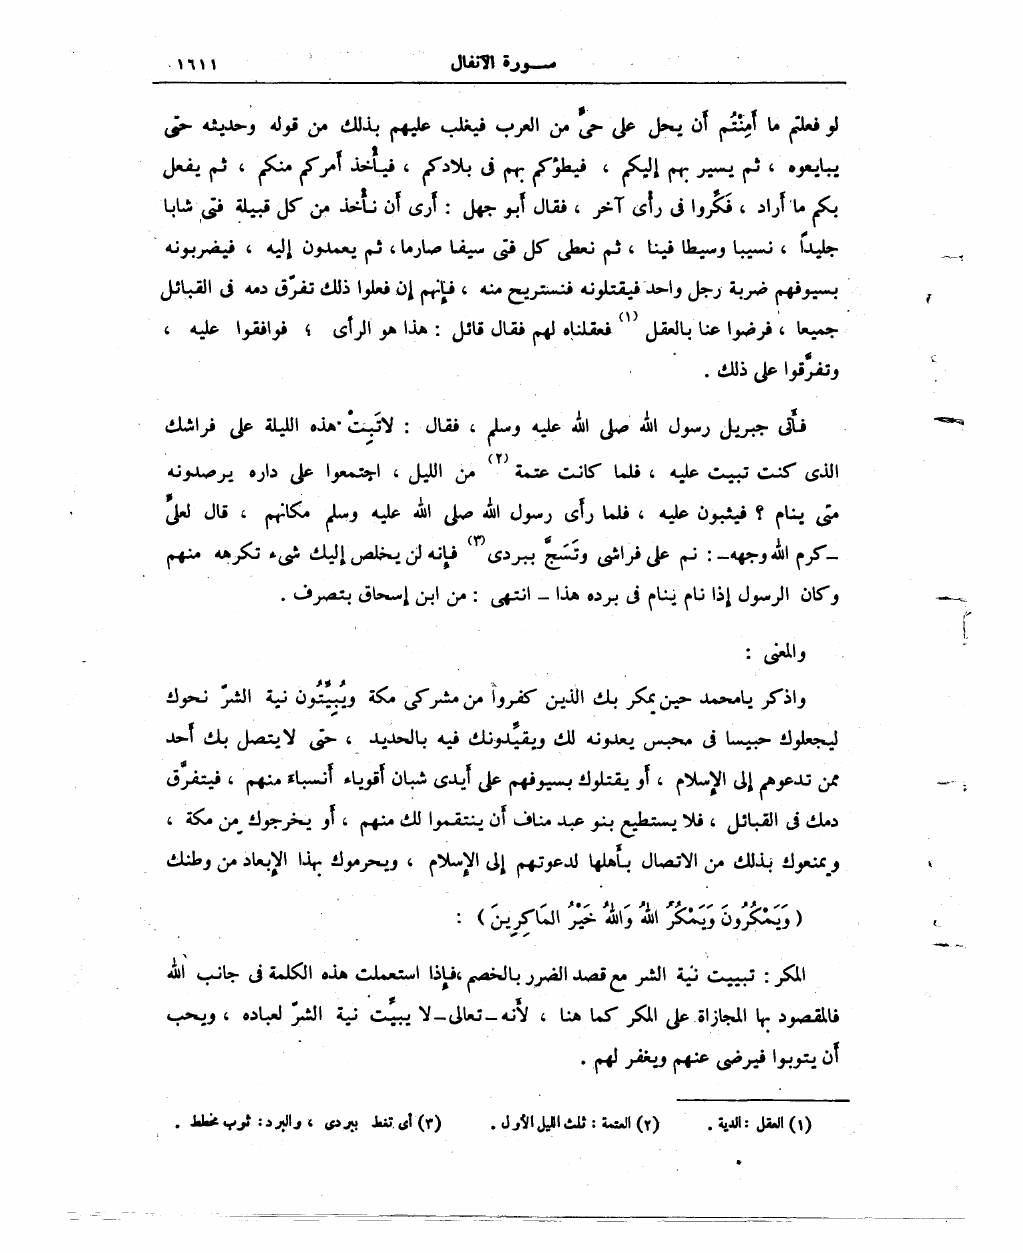 سورة الأنفال ١٦١١
لو فعلتم ما أَمِنْتُم أن يحل على حىٍّ من العرب فيغلب عليهم بذلك من قوله وحديثه حتى
يبايعوه ، ثم يسير بهم إليكم ، فيطؤكم بهم فى بلادكم ، فيأْخذ أمركم منكم ، ثم يفعل
بكم ما أراد ، فَكِّروا فى رأى آخر ، فقال أبو جهل : أرى أن نأْخذ من كل قبيلة فتى شابا
جليداً ، نسيبا وسيطا فينا ، ثم نعطى كل فتى سيفا صارما، ثم يعمدون إليه ، فيضربونه
بسيوفهم ضربة رجل واحد فيقتلونه فنستريح منه ، فإنهم إن فعلوا ذلك تفرّق دمه فى القبائل
جميعا ، فرضوا عنا بالعقل (١) فعقلناه لهم فقال قائل : هذا هو الرأى ؛ فوافقوا عليه ،
وتفرَّقوا على ذلك .
فأَتى جبريل رسول الله صلى الله عليه وسلم ، فقال : لاتَبِتْ هذه الليلة على فراشك
الذى كنت تبيت عليه ، فلما كانت عتمة (٢) من الليل ، اجتمعوا على داره يرصدونه
متى ينام ؟ فيثبون عليه ، فلما رأى رسول الله صلى الله عليه وسلم مكانهم ، قال لعلىٍّ
ـ كرم الله وجهه ـ : نم على فراشى وتَسَجَّ ببردى (٣) فإنه لن يخلص إليك شىء تكرهه منهم
وكان الرسول إذا نام ينام فى برده هذا ـ انتهى : من ابن إسحاق بتصرف .
والمعنى :
واذكر يامحمد حين يمكر بك الذين كفروا من مشركى مكة ويُبيِّتُون نية الشرّ نحوك
ليجعلوك حبيسا فى محبس يعدونه لك ويقيِّدونك فيه بالحديد ، حتى لايتصل بك أحد
ممن تدعوهم إلى الإسلام ، أو يقتلوك بسيوفهم على أيدى شبان أقوياء أنسباء منهم ، فيتفرَّق
دمك فى القبائل ، فلا يستطيع بنو عبد مناف أن ينتقموا لك منهم ، أو يخرجوك من مكة ،
ويمنعوك بذلك من الاتصال بأهلها لدعوتهم إلى الإسلام ، ويحرموك بهذا الإبعاد من وطنك
( وَيَمْكُرُونَ وَيَمْكُرُ اللهُ وَاللهُ خَيْرُ المَاكِرِينَ ) :
المكر : تبييت نية الشر مع قصد الضرر بالخصم ،فإذا استعملت هذه الكلمة فى جانب الله
فالمقصود بها المجازاة على المكر كما هنا ، لأَنه ـ تعالى ـ لا يبيِّت نية الشرّ لعباده ، ويحب
أن يتوبوا فيرضى عنهم ويغفر لهم .
(١) العقل : الدية . (٢) العتمة : ثلث الليل الأول . (٣) أى تغط ببردى ، والبرد: ثوب مخطط .